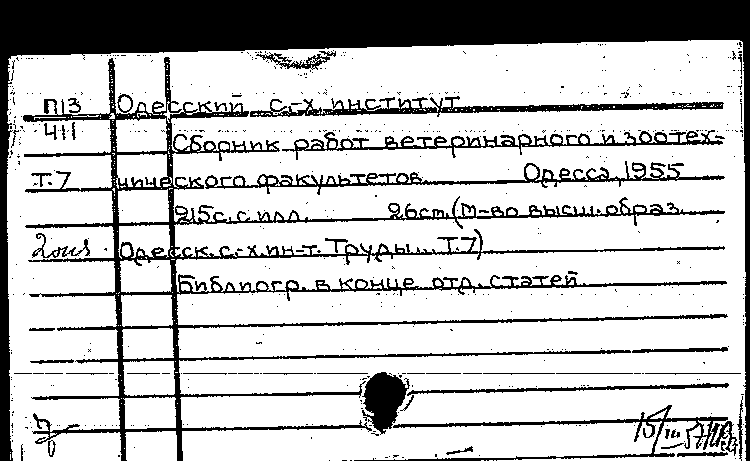 П13 Одесский с.-х. институт
411
Сборник работ ветеринарного и зоотех-
Т.7 нического факультетов. Одесса, 1955
215с. с илл. 26см. (М-во высш. образ.
2 экз. Одесск. с.-х. ин-т. Труды... Т.7)
Библиогр. в конце отд. статей
15/III 57